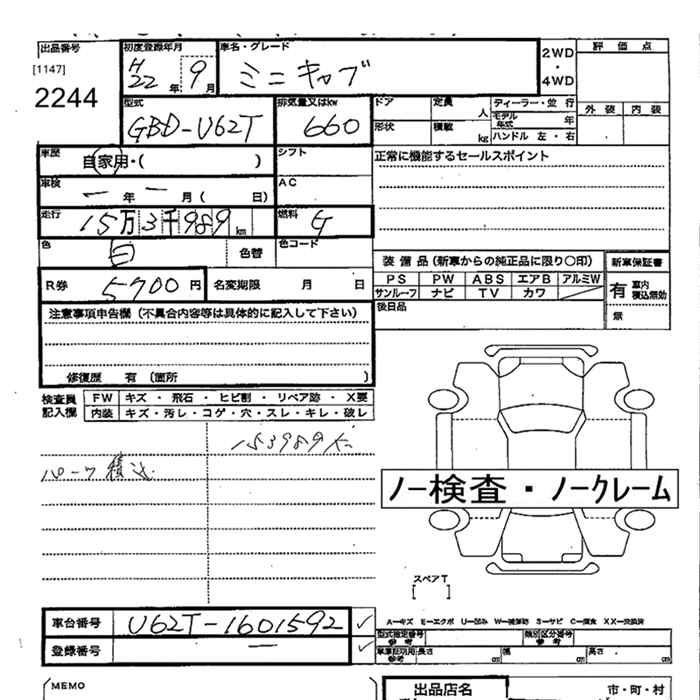 出品番号
[1147]
2244
初度登録年月
H22年 9月
車名・グレード
ミニキャブ
2WD
・
4WD
評価点
外装 内装
型式
GBD-U62T
排気量又はkw
660
ドア 定員 人
形状 積載 kg
ディーラー・並行
モデル年式 年
ハンドル 左・右
車歴
自家用・( )
シフト
正常に機能するセールスポイント
車検
ー年ー月( 日)
AC
走行
15万3千989km
燃料
G
色
白
色替
色コード
装備品(新車からの純正品に限り○印)
PS PW ABS エアB アルミW
サンルーフ ナビ TV カワ
新車保証書
有 車内積込無効
無
R券
5700円
名変期限 月 日
後日品
注意事項申告欄(不具合内容等は具体的に記入して下さい)
修復歴 有(箇所 )
検査員記入欄
FW キズ・飛石・ヒビ割・リペア跡・X要
内装 キズ・汚レ・コゲ・穴・スレ・キレ・破レ
153989K
パーク積込
ノー検査・ノークレーム
スペアT
[ ]
車台番号
U62T-1601592 ✓
登録番号
ー ✓
A−キズ E−エクボ U−凹み W−補修跡 S−サビ C−腐食 XX−交換済
型式指定番号 参考
類別区分番号 参考
車庫証明用 参考 長さ cm 幅 cm 高さ cm
MEMO
出品店名
市・町・村